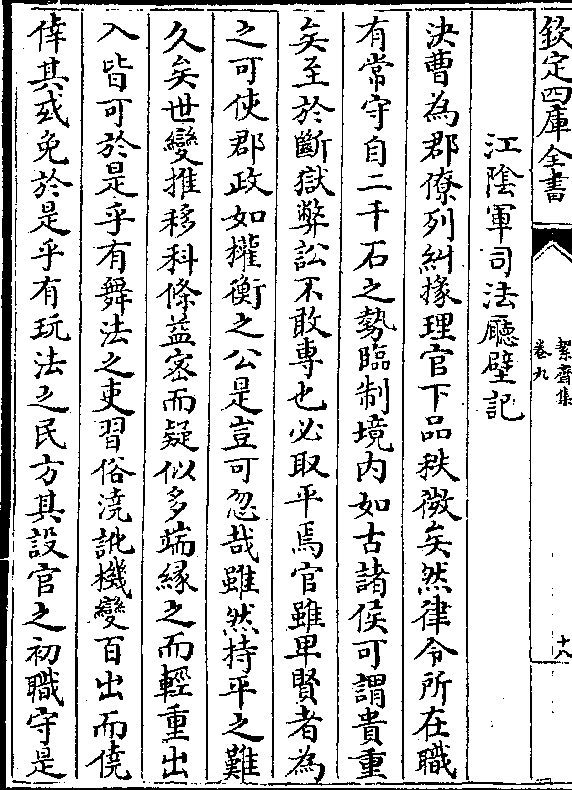 欽定四庫全書
絜齋集
卷九
十八
江陰軍司法廳壁記
決曹為郡僚列糾掾理官下品秩微矣然律令所在職
有常守自二千石之勢臨制境內如古諸侯可謂貴重
矣至於斷獄弊訟不敢專也必取平焉官雖卑賢者為
之可使郡政如權衡之公是豈可忽哉雖然持平之難
久矣世變推移科條益密而疑似多端緣之而輕重出
入皆可於是乎有舞法之吏習俗澆訛機變百出而僥
倖其或免於是乎有玩法之民方其設官之初職守是